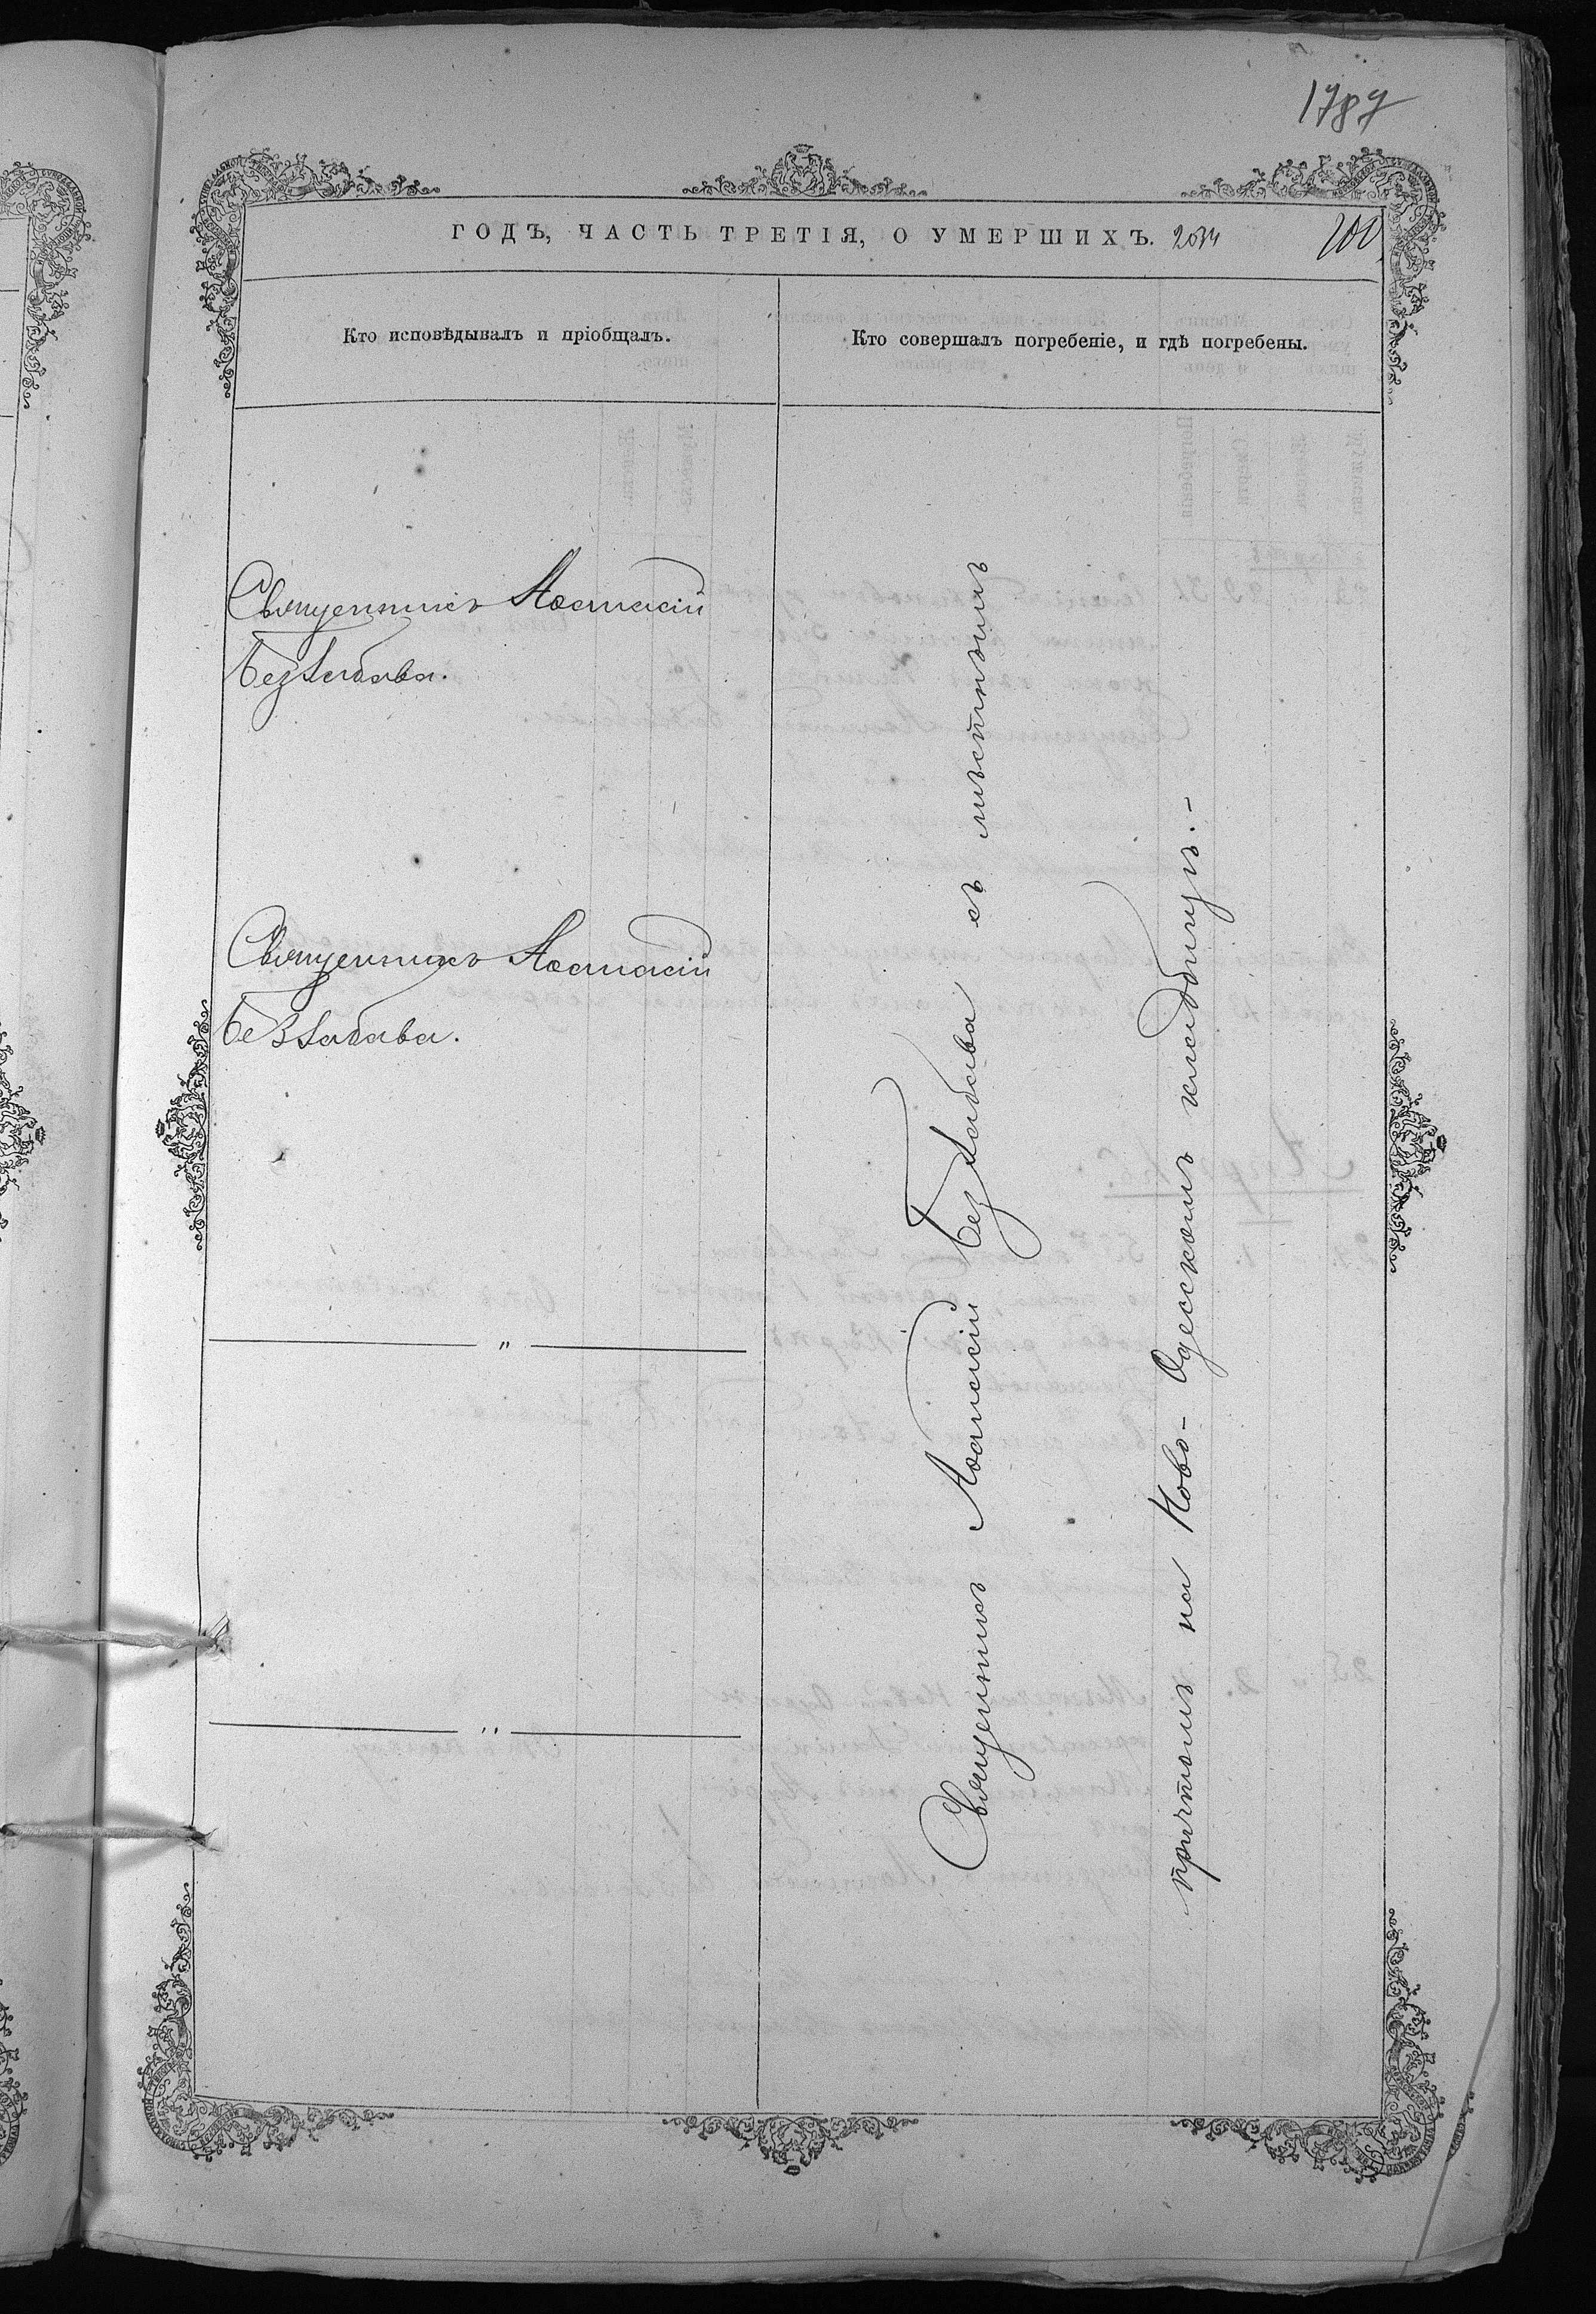 1787
ГОДЪ, ЧАСТЬ ТРЕТІЯ, О УМЕРШИХЪ. 2034
200
Кто исповѣдывалъ и пріобщалъ.
Кто совершалъ погребеніе, и гдѣ погребены.
Священникъ Аѳанасій
Беззабава.
Священникъ Аѳанасій
Беззабава.
"
"
Священникъ Аѳанасій Беззабава съ мѣстнымъ
причтомъ на Ново-Одесскомъ кладбищѣ.-